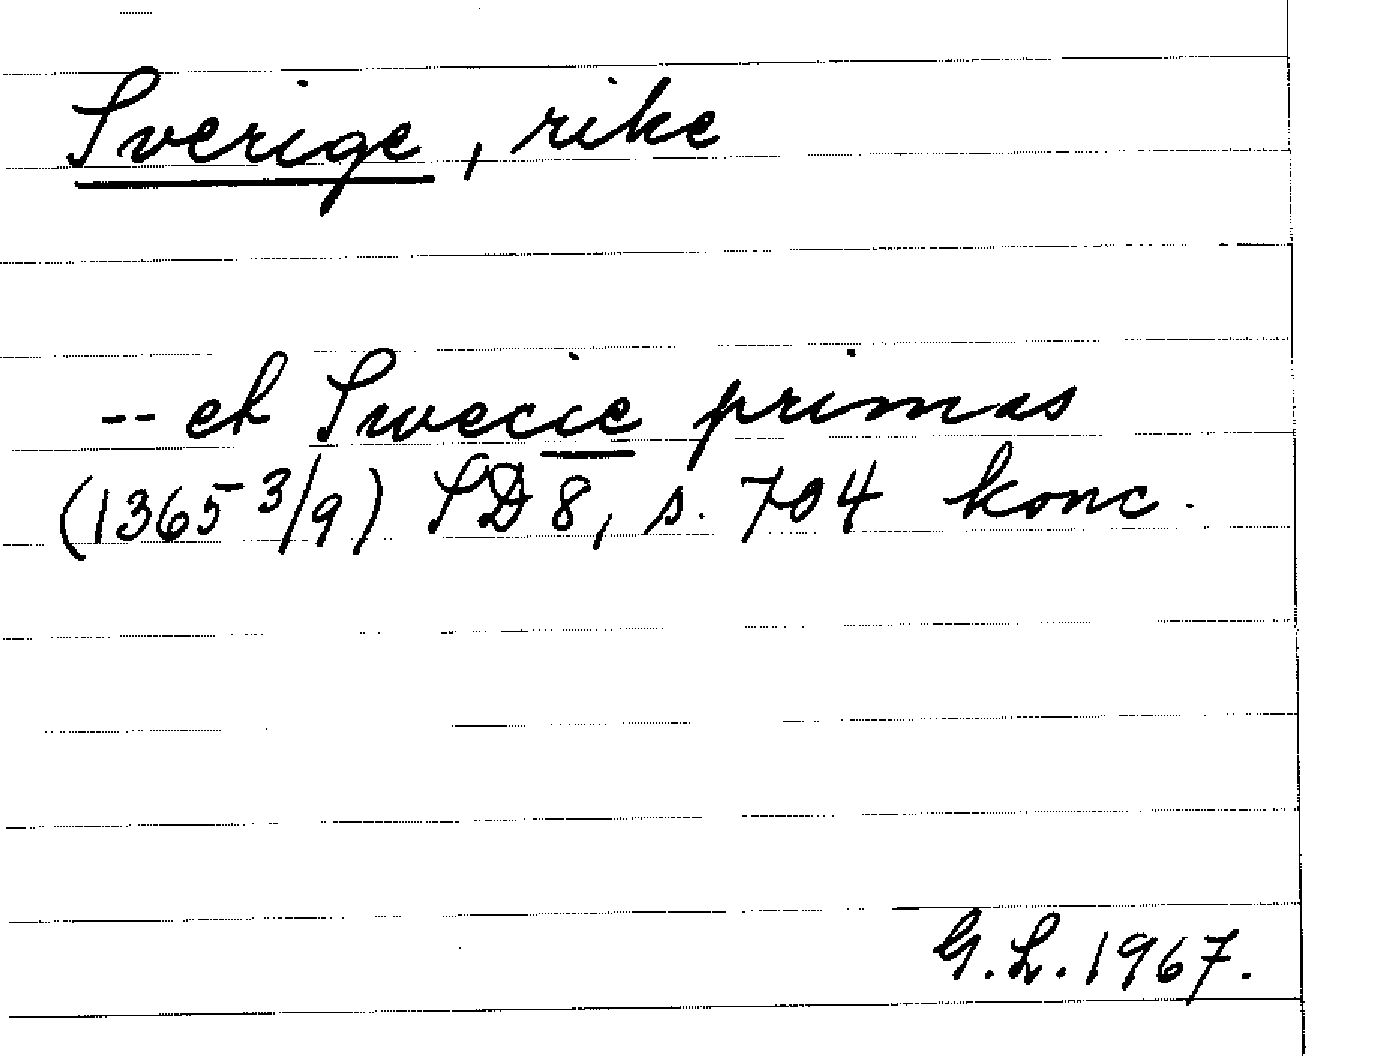 Sverige, rike
-- et Swecie primas
(1365 3/9) SD 8, s. 704 konc.
G.L. 1967.